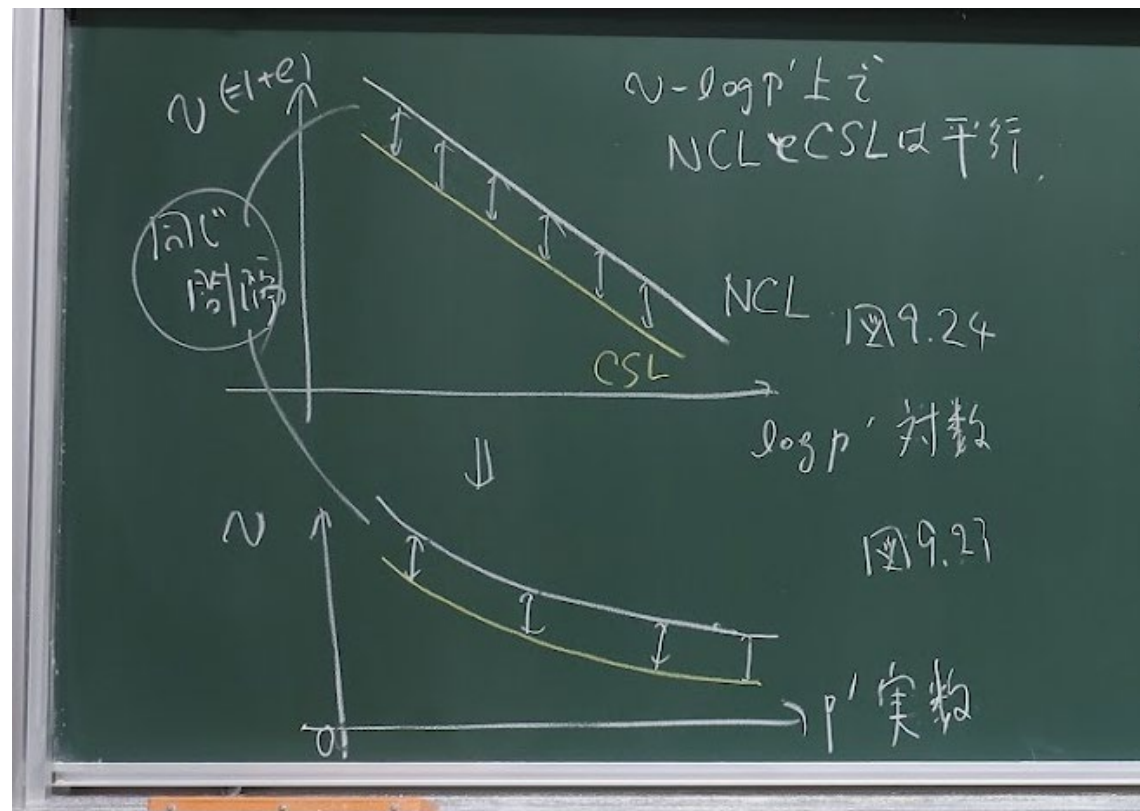 v (=1+e)
v-logp'上で
NCLとCSLは平行.
同じ
間隔
NCL
図9.24
CSL
logp' 対数
v
図9.23
0
p' 実数